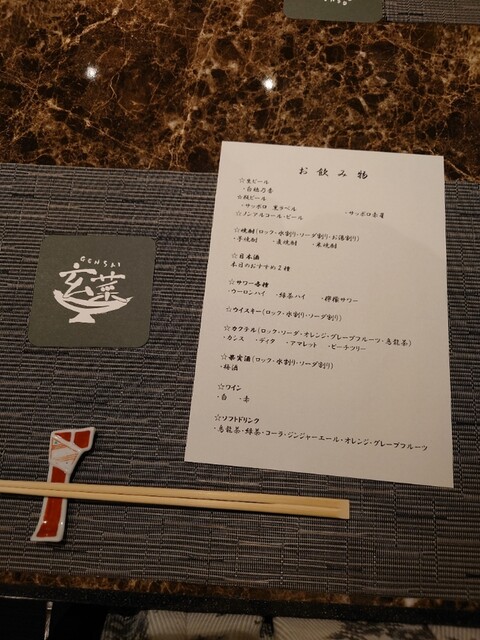 お飲み物
☆生ビール
・白穂乃香
☆瓶ビール
・サッポロ 黒ラベル ・サッポロ赤星
☆ノンアルコールビール
☆焼酎(ロック・水割り・ソーダ割り・お湯割り)
・芋焼酎 ・麦焼酎 ・米焼酎
☆日本酒
本日のおすすめ2種
☆サワー各種
・ウーロンハイ ・緑茶ハイ ・檸檬サワー
☆ウイスキー(ロック・水割り・ソーダ割り)
☆カクテル(ロック・ソーダ・オレンジ・グレープフルーツ・烏龍茶)
・カシス ・ディタ ・アマレット ・ピーチツリー
☆果実酒(ロック・水割り・ソーダ割り)
・梅酒
☆ワイン
・白 ・赤
☆ソフトドリンク
・烏龍茶・緑茶・コーラ・ジンジャーエール・オレンジ・グレープフルーツ
GENSAI
玄菜